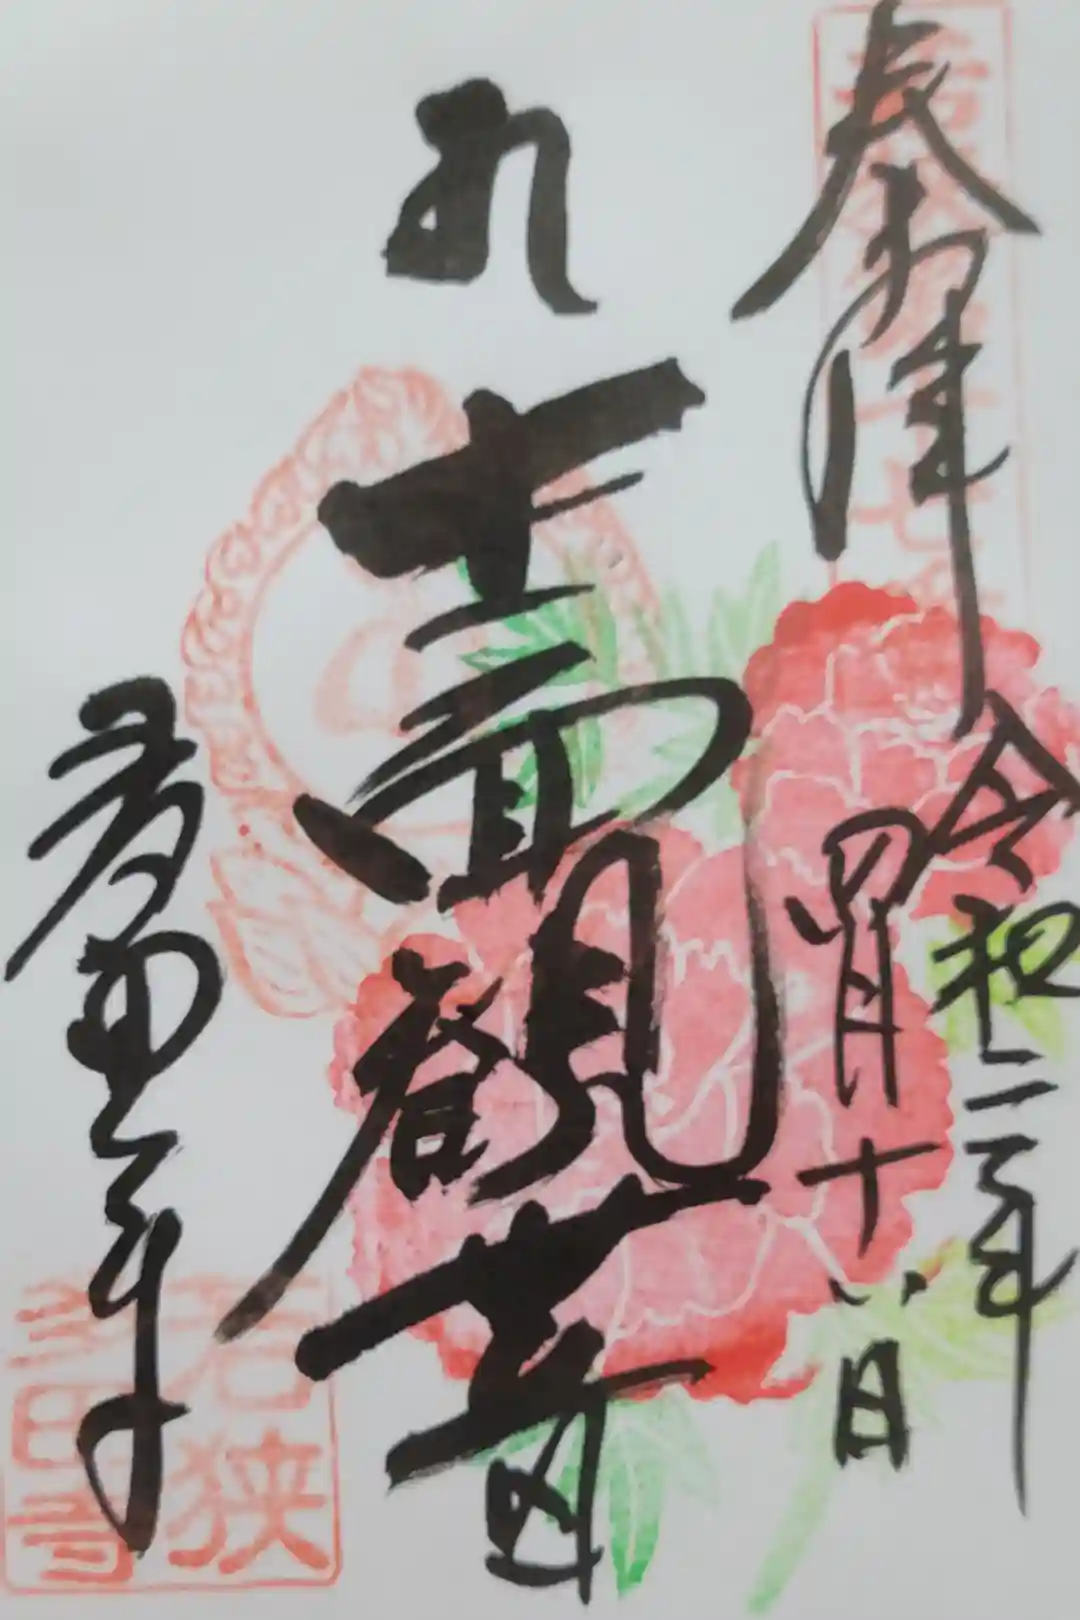 奉拝
令和二年
四月十八日
十一面観音
多田寺
若狭
多田寺